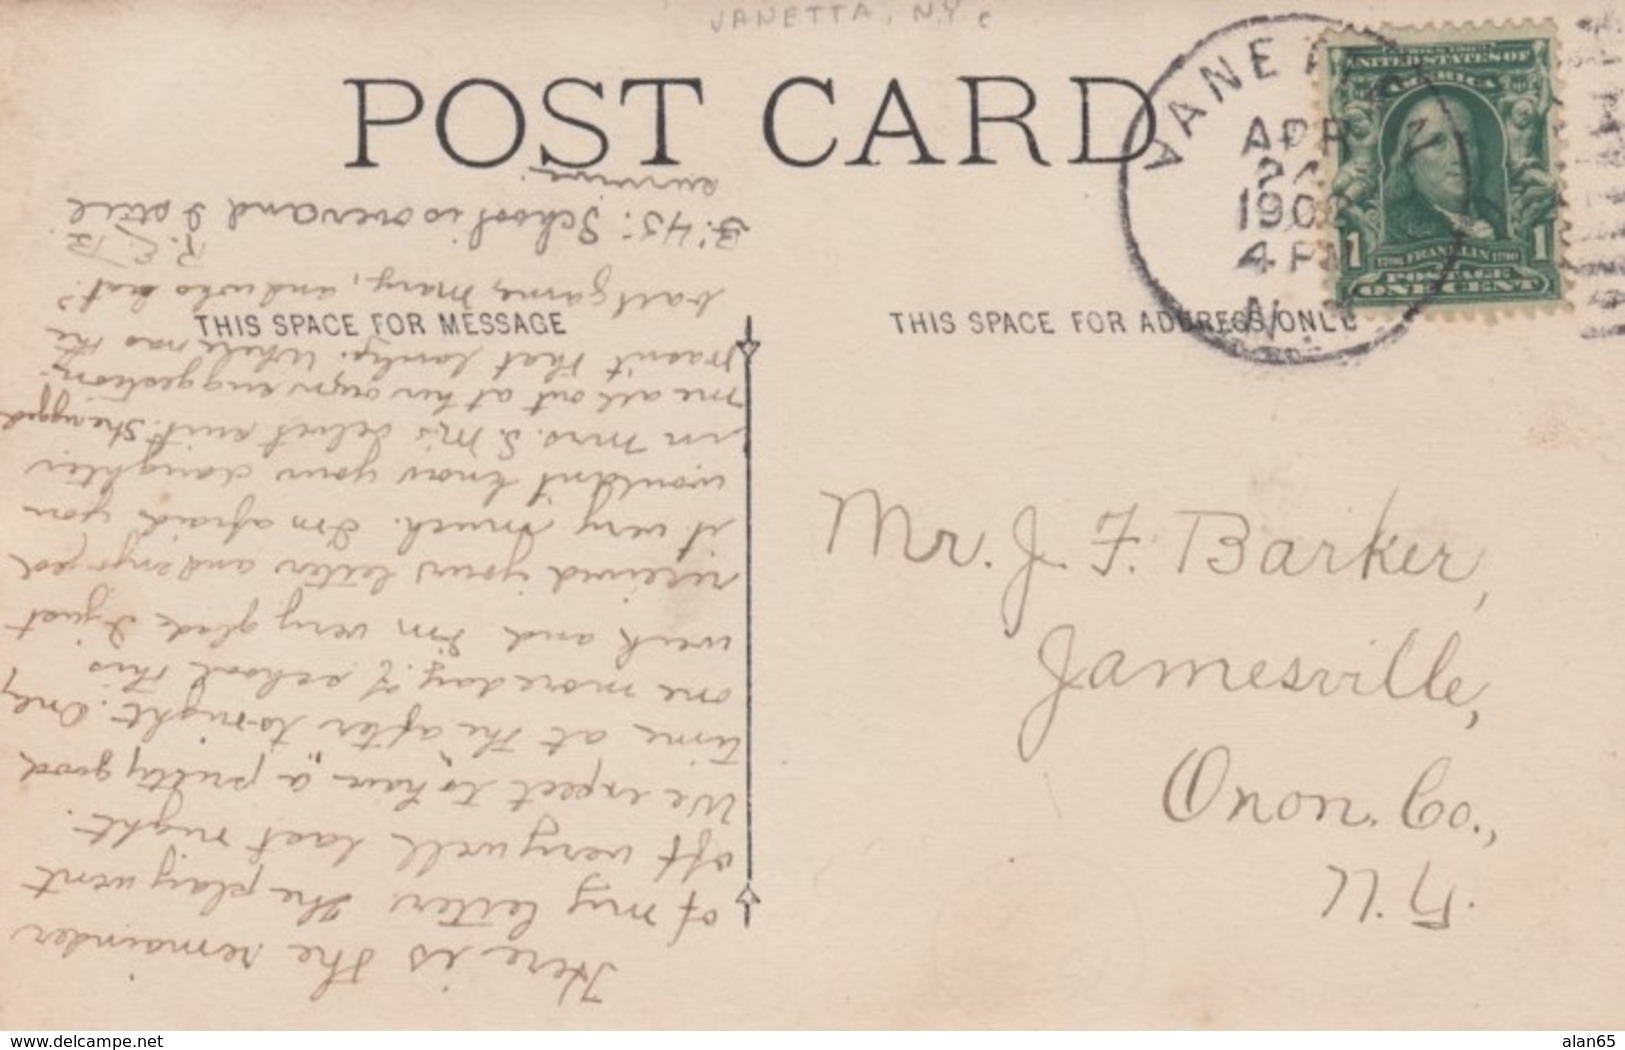 JANETTA, N.Y.
POST CARD
APR
190
4 PM
N.
SERIES 1902
UNITED STATES OF
AMERICA
1 1
1706 FRANKLIN 1790
POSTAGE
ONE CENT
THIS SPACE FOR MESSAGE
THIS SPACE FOR ADDRESS ONLY
Mr. J. F. Barker,
Jamesville,
Onon. Co.,
N. Y.
Here is the remainder
of my letter. The play went
off very well last night.
We expect to have a pretty good
time at the "after" to-night. Only
one more day of school this
week and I'm very glad. I just
received your letter and enjoyed
it very much. I'm afraid you
wouldn't know your daughter
in Mrs. S. M's velvet suit. She rigged
me all out at her own suggestion.
Wasn't that lovely. Where was the
ball game, Mary, and who beat?
R. E. B.
3:45: School is over and I still
survive.
www.delcampe.net
alan65